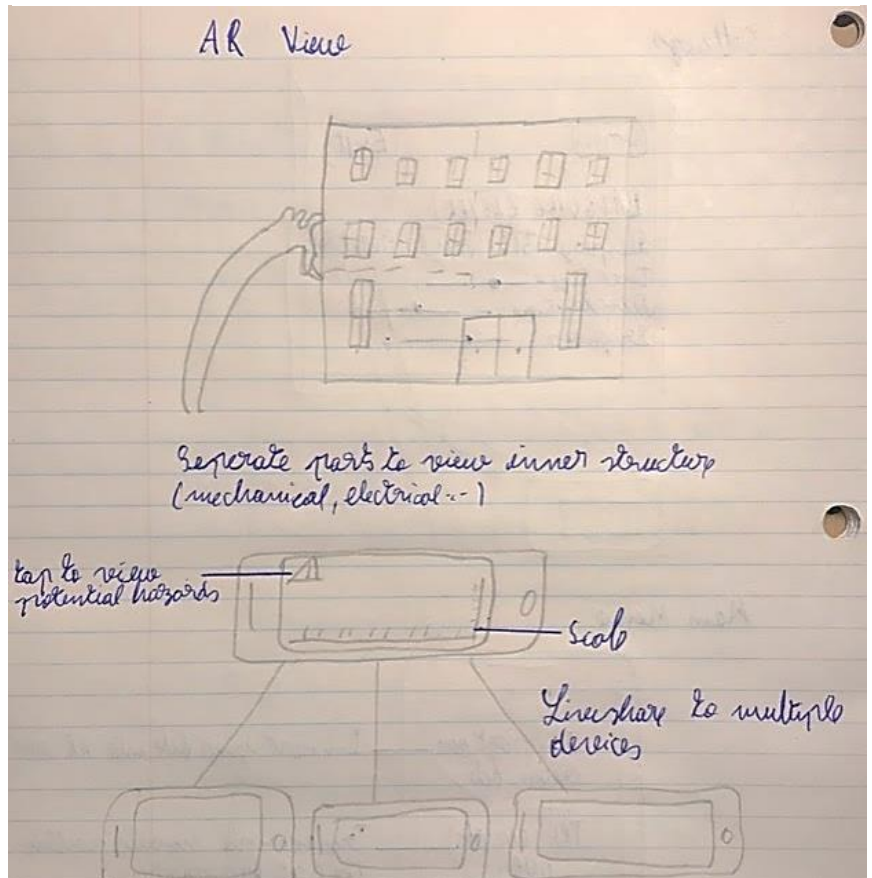 AR View
Seperate parts to view inner structure
(mechanical, electrical...)
tap to view
potential hazards
Scale
Liveshare to multiple
devices